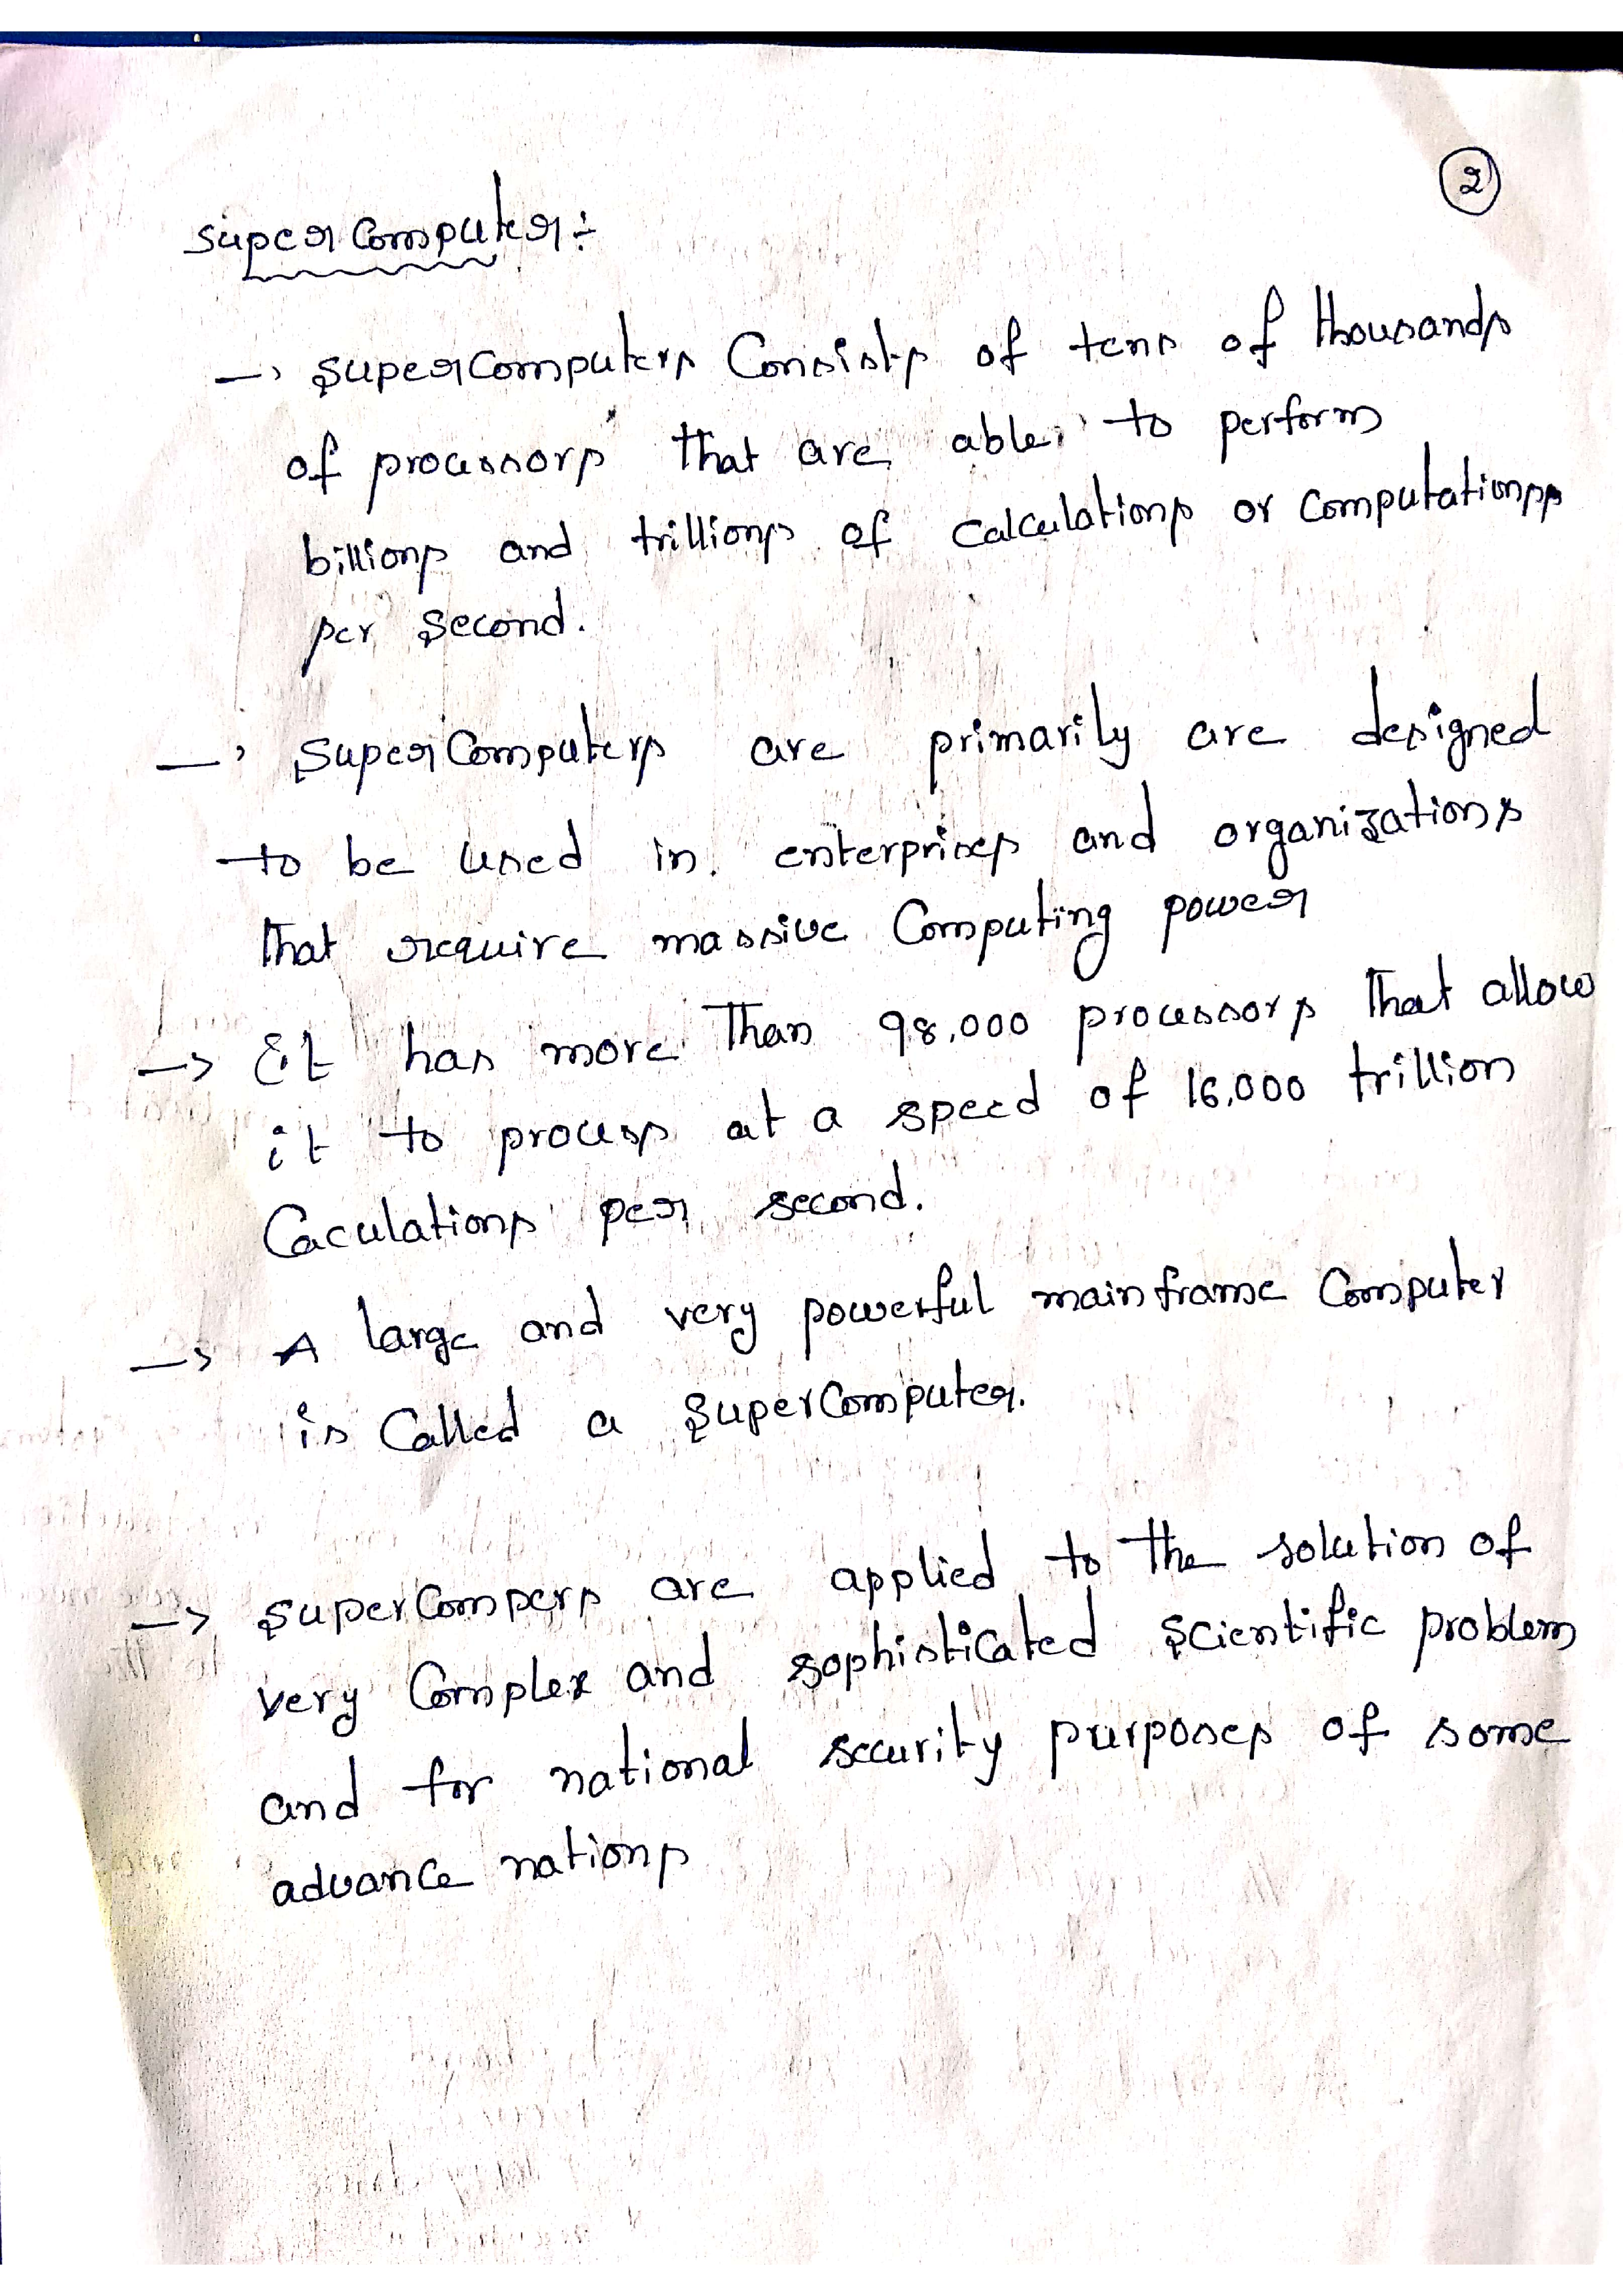 2
Super Computer :-
→ Supercomputers Consists of tens of thousands
of processors that are able to perform
billions and trillions of calculations or computations
per second.
→ Super Computers are primarily are designed
to be used in enterprises and organizations
that require massive Computing power
→ It has more than 98,000 processors that allow
it to process at a speed of 16,000 trillion
Caculations per second.
→ A large and very powerful mainframe Computer
is Called a SuperComputer.
→ SuperCompers are applied to the solution of
very Complex and sophisticated scientific problem
and for national security purposes of some
advance nations